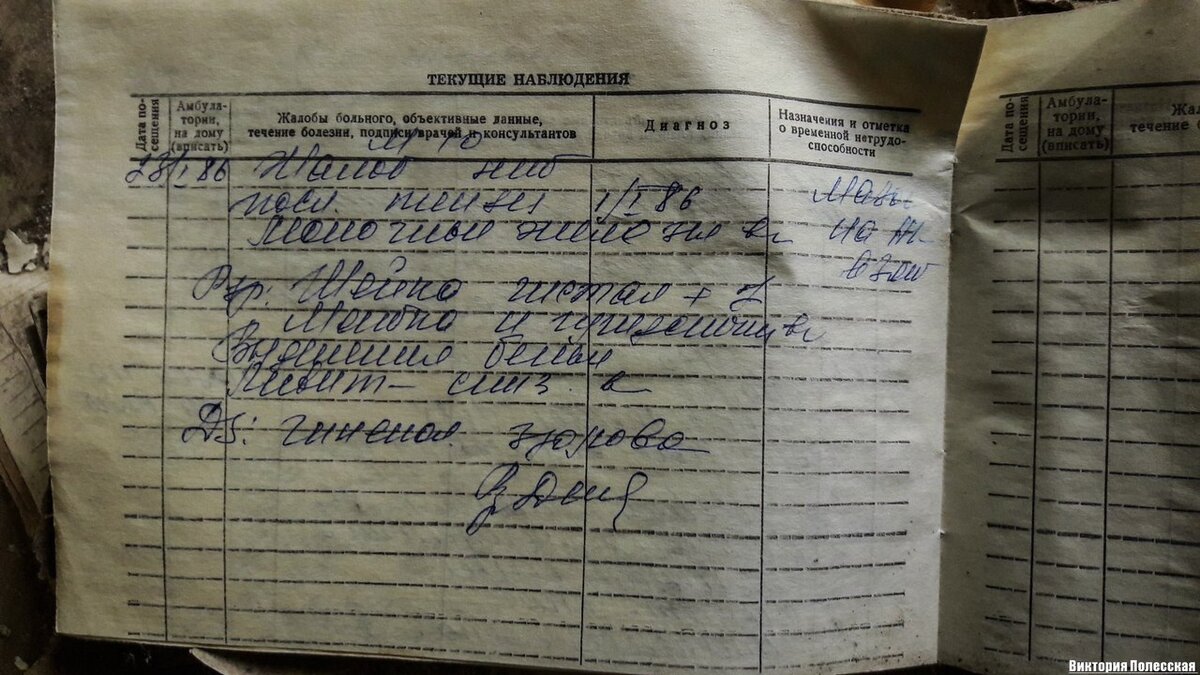 ТЕКУЩИЕ НАБЛЮДЕНИЯ
Дата по-
сещения
Амбула-
тории,
на дому
(вписать)
Жалобы больного, объективные данные,
течение болезни, подписи врачей и консультантов
Диагноз
Назначения и отметка
о временной нетрудо-
способности
23/I 86
Жалоб нет
посл. menses 1/I 86
Молочные железы
Шейка чистая
Матка и придатки
Выделения белые
Ds: гинекол. здорова
Мазок
на
Дата по-
сещения
Амбула-
тории,
на дому
(вписать)
Жа
течение
Виктория Полесская